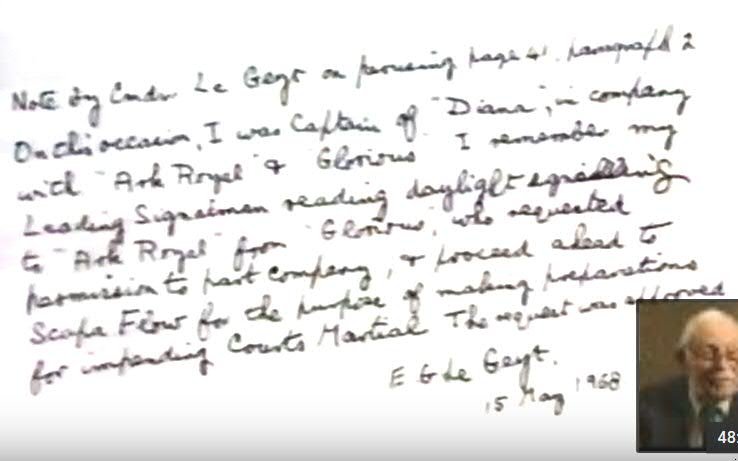 Note by Cmdr Le Geyt on perusing page 41. paragraph 2
On this occasion, I was Captain of "Diana", in company
with "Ark Royal" & "Glorious" I remember my
Leading Signalman reading daylight signalling
to "Ark Royal" from "Glorious", who requested
permission to part company, & proceed ahead to
Scapa Flow for the purpose of making preparations
for impending Courts Martial The request was approved
E G Le Geyt.
15 May 1968
48: